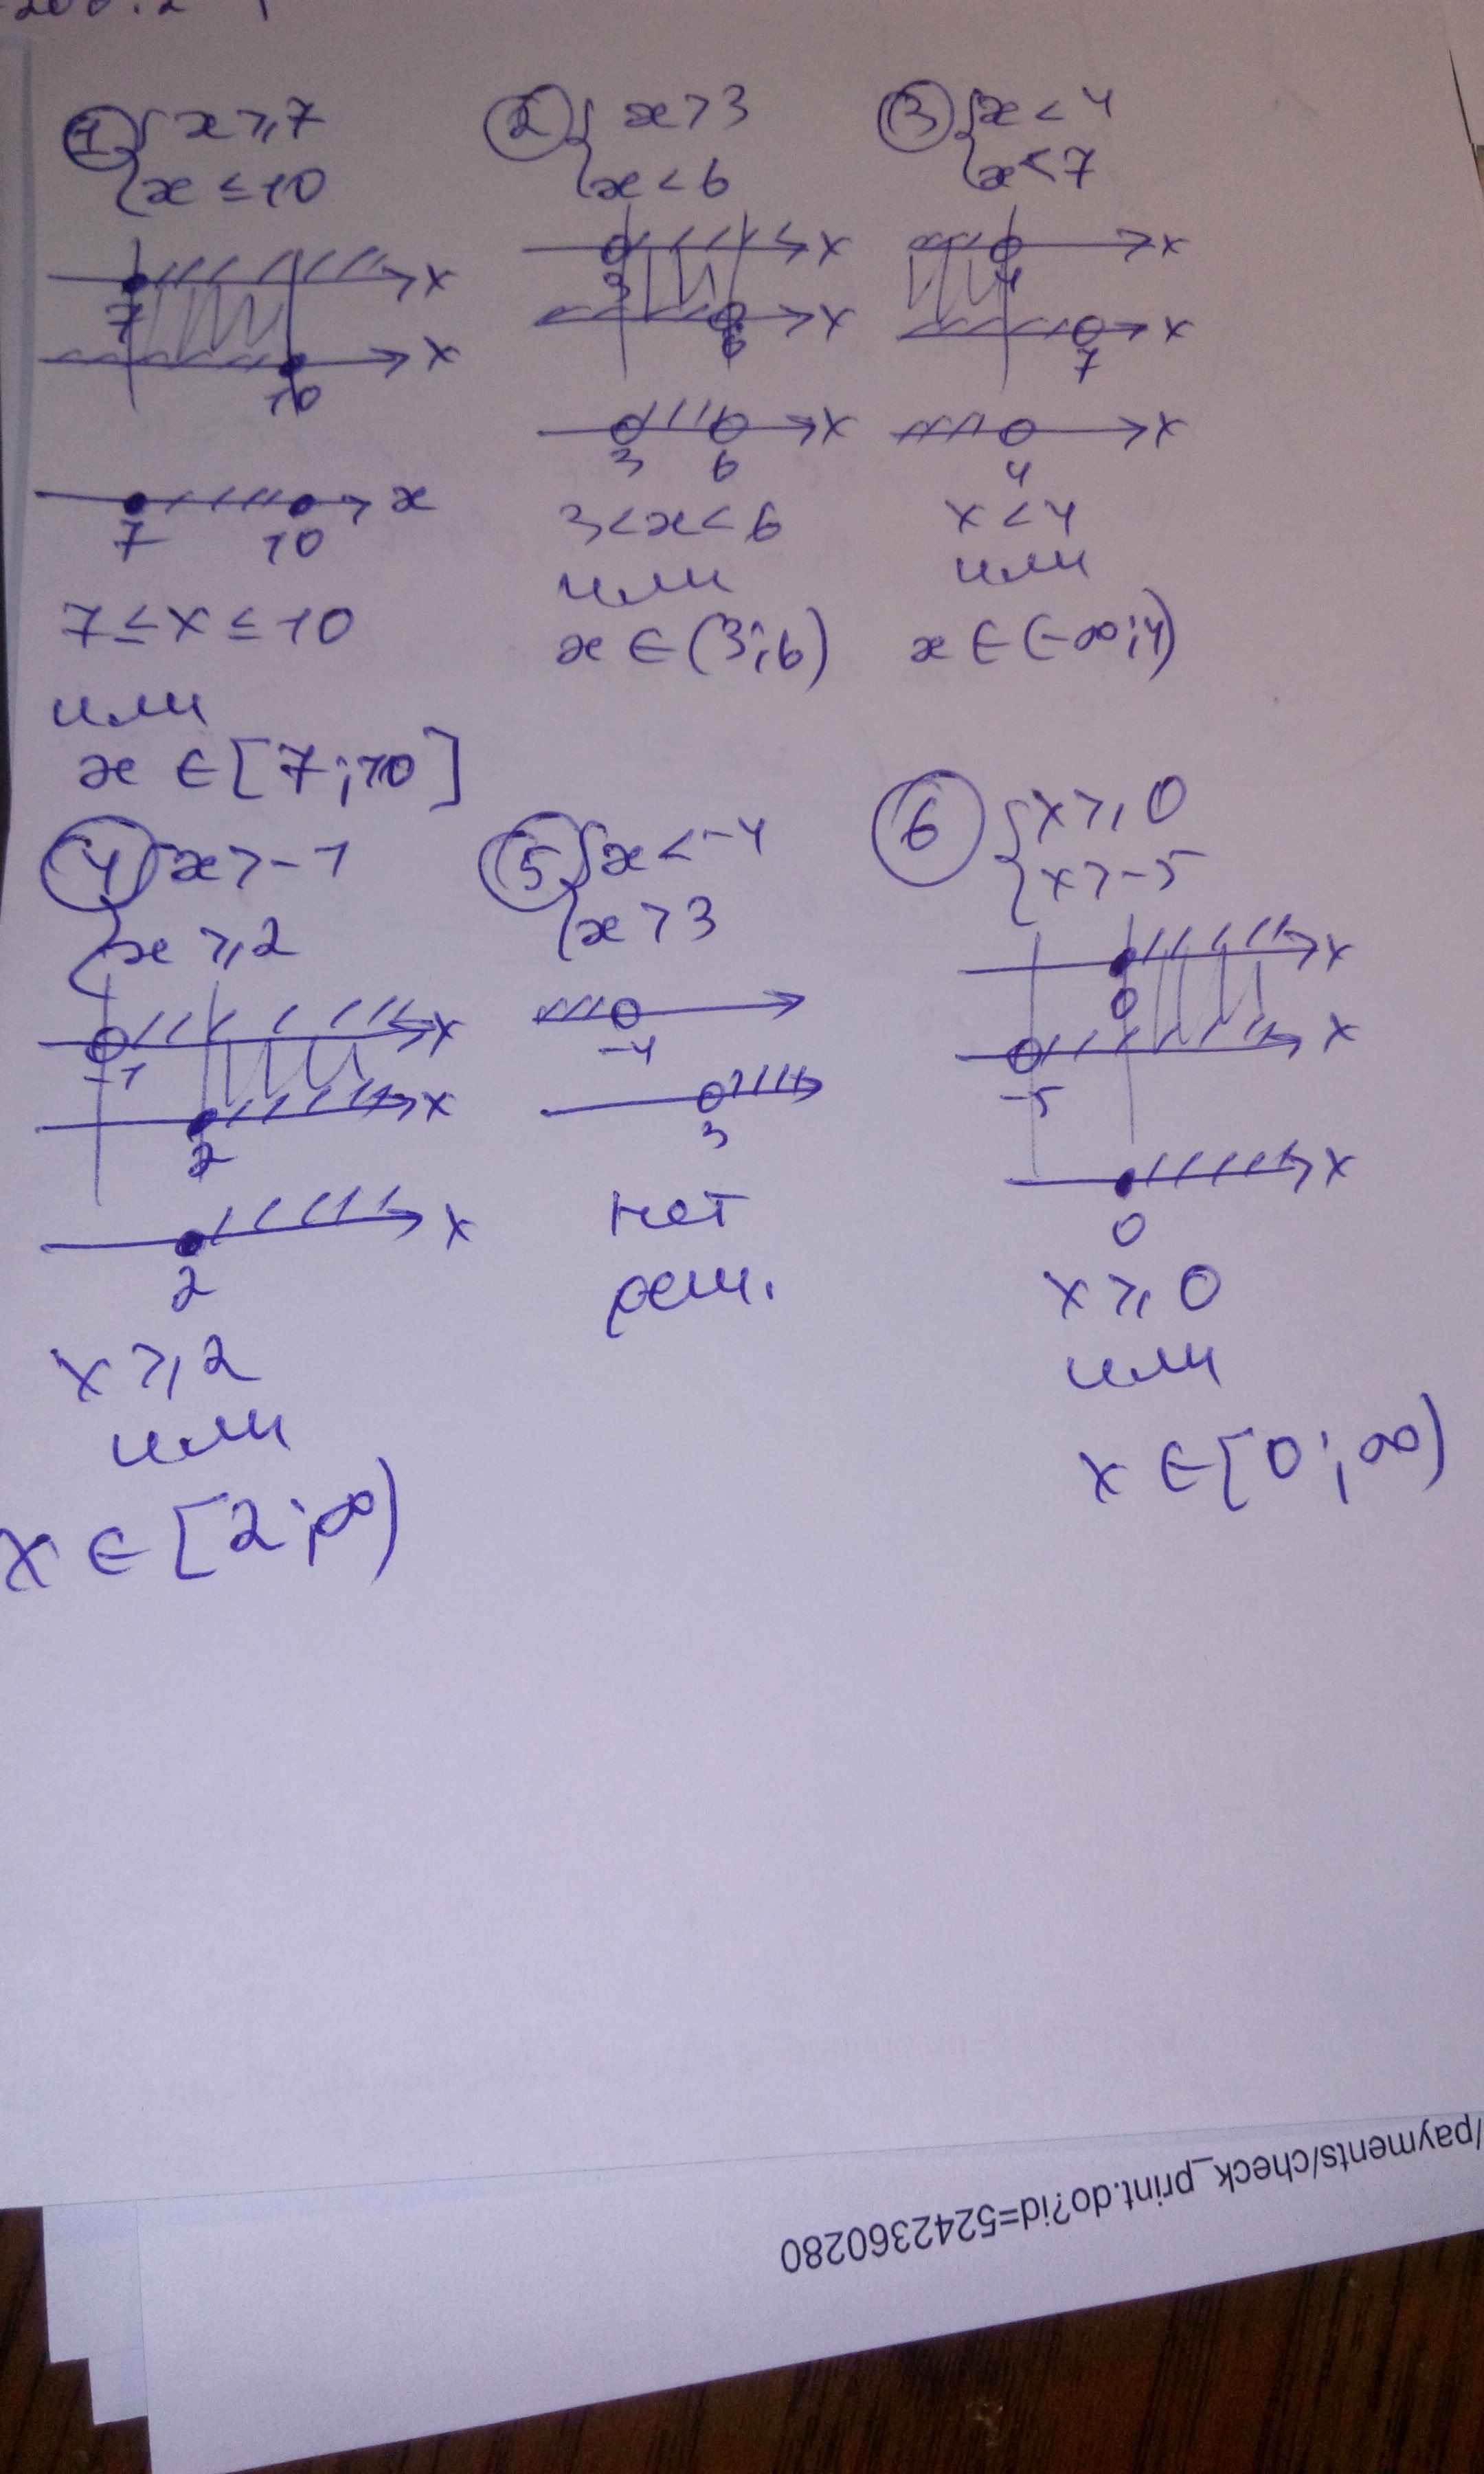 ① { x ≥ 7
x ≤ 10
x
7
x
10
x
7 10
7 ≤ x ≤ 10
или
x ∈ [7; 10]
② { x > 3
x < 6
x
3
x
6
x
3 6
3 < x < 6
или
x ∈ (3; 6)
③ { x < 4
x < 7
x
4
x
7
x
4
x < 4
или
x ∈ (-∞; 4)
④ { x > -1
x ≥ 2
x
-1
x
2
x
2
x ≥ 2
или
x ∈ [2; ∞)
⑤ { x < -4
x > 3
-4
3
нет
реш.
⑥ { x ≥ 0
x > -5
x
0
x
-5
x
0
x ≥ 0
или
x ∈ [0; ∞)
/payments/check_print.do?id=5242360280